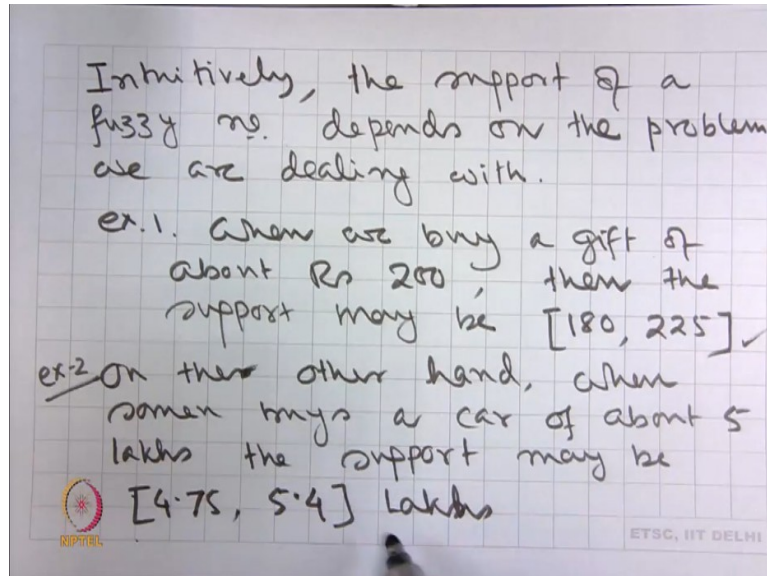 Intuitively, the support of a
fuzzy no. depends on the problem
we are dealing with.
ex.1. When we buy a gift of
about Rs 200, then the
support may be [180, 225]
ex-2 On the other hand, when
someone buys a car of about 5
lakhs the support may be
[4.75, 5.4] Lakhs
NPTEL
ETSC, IIT DELHI